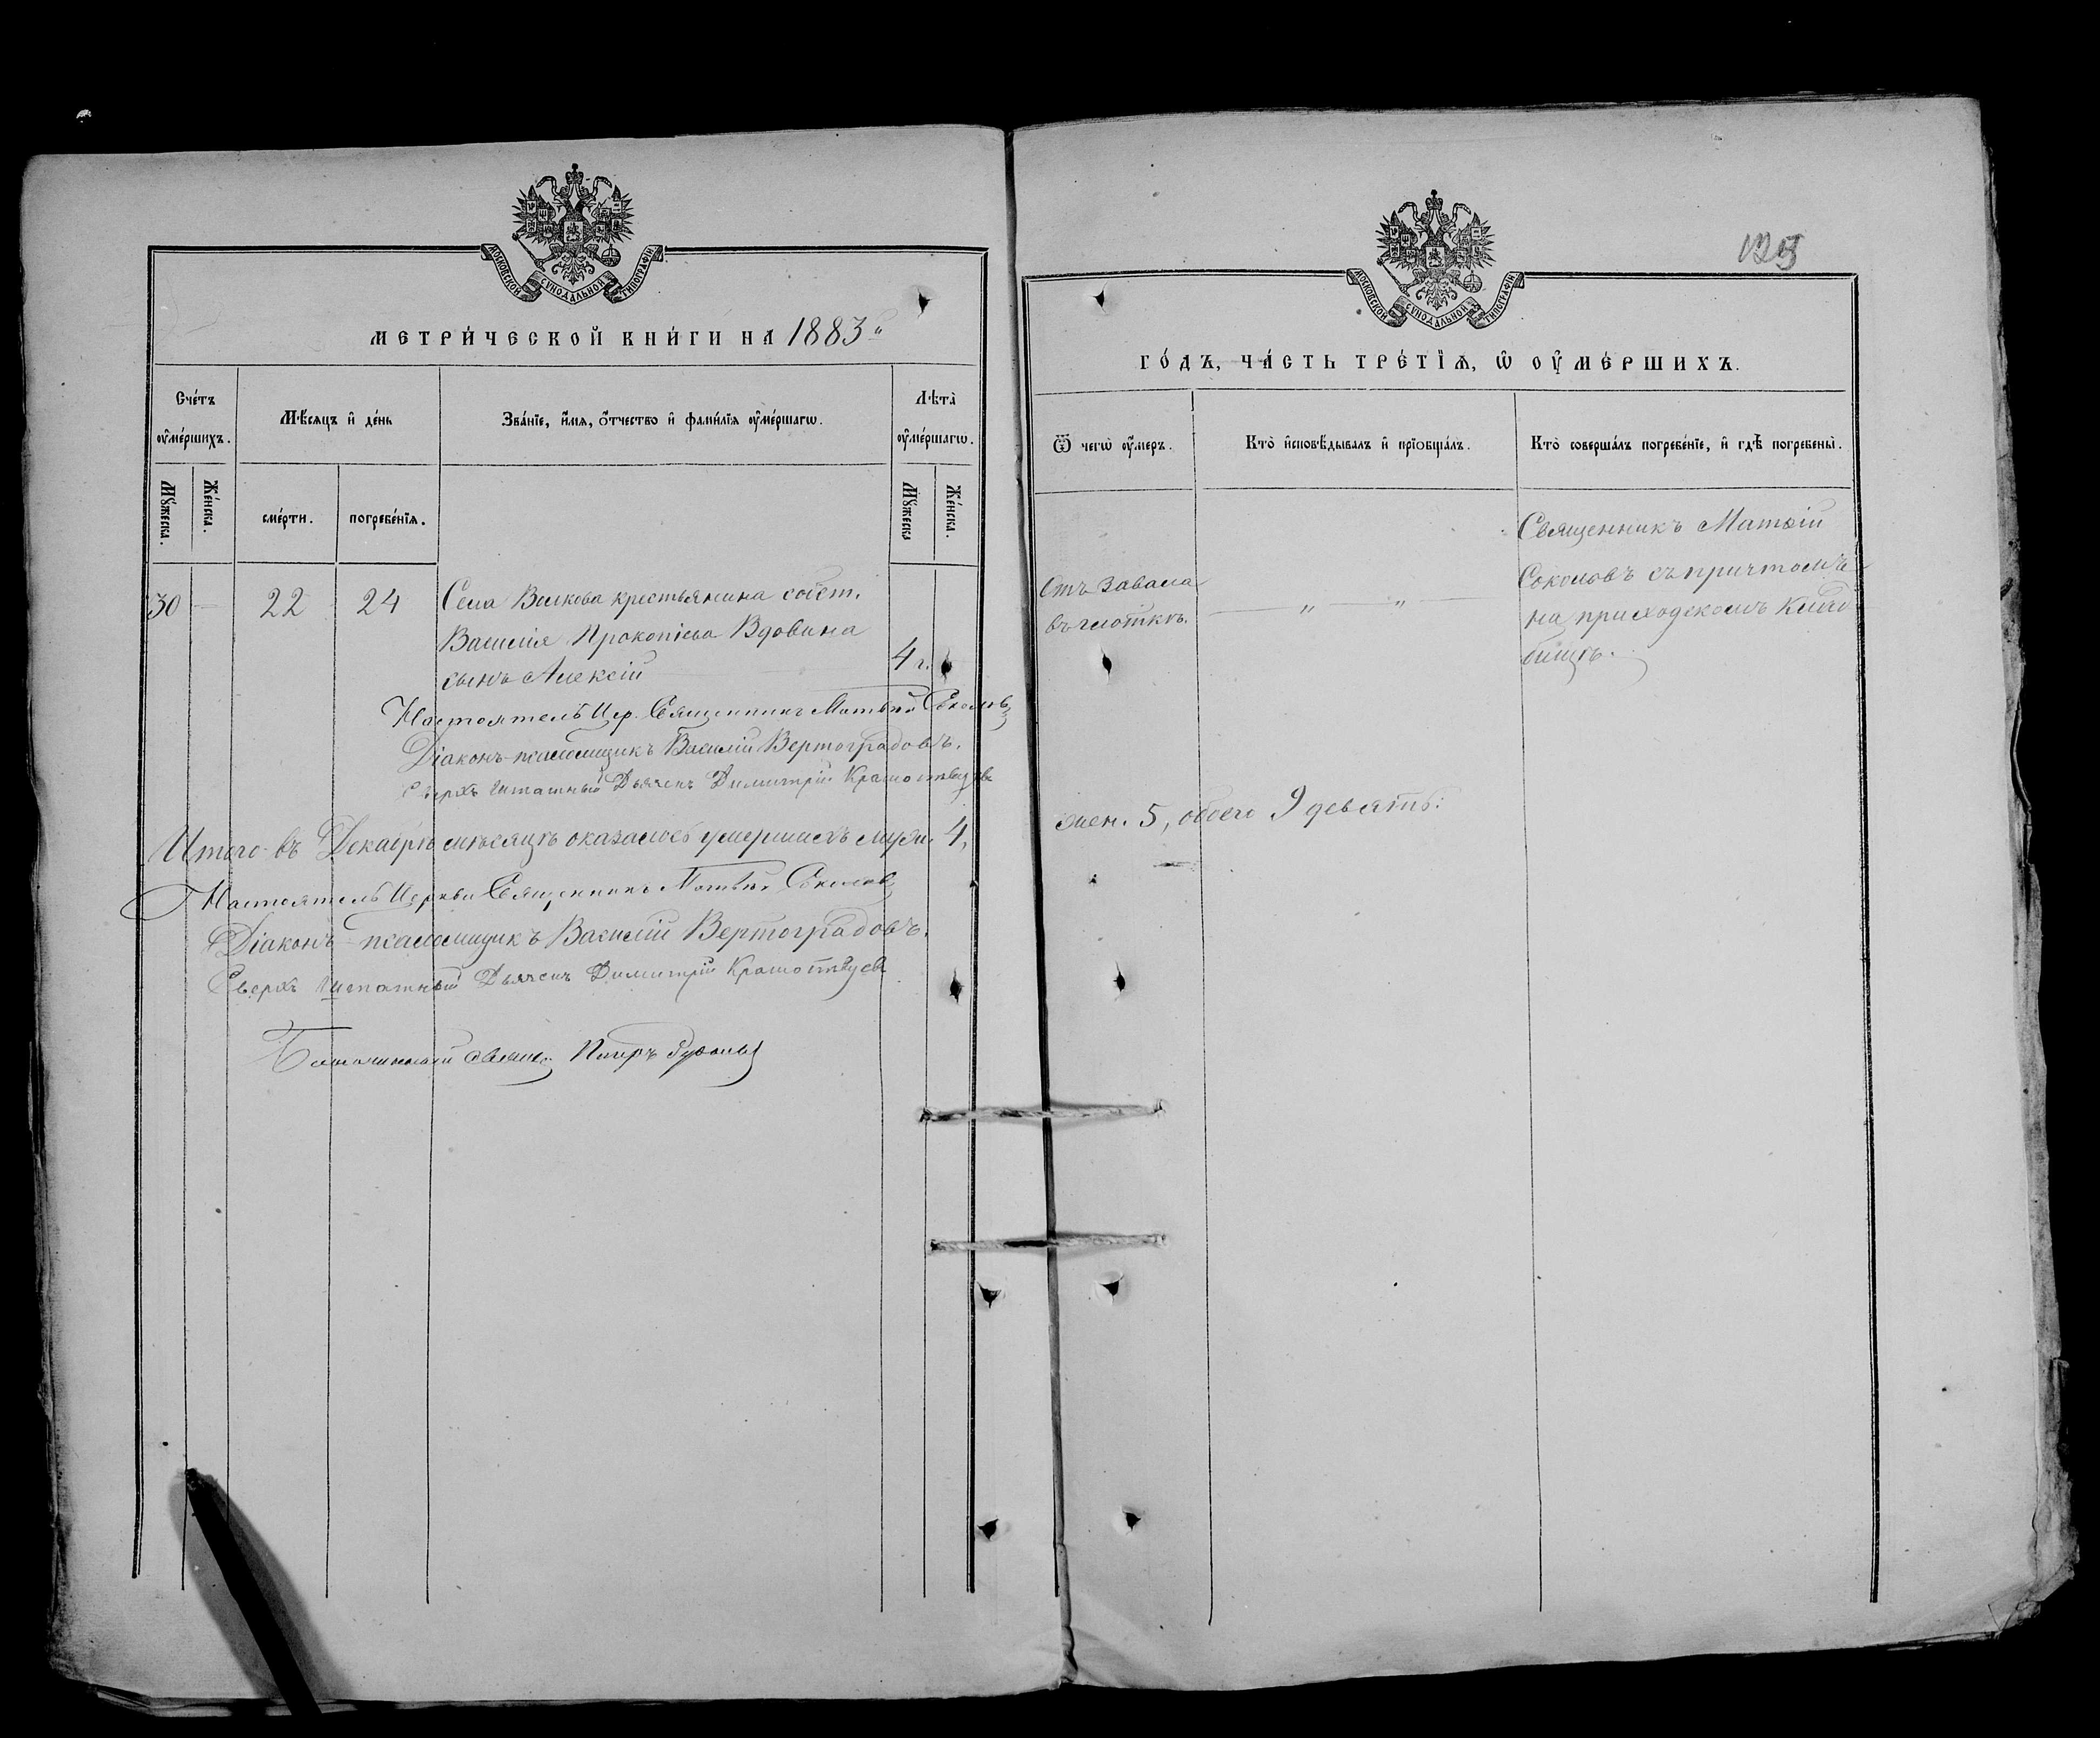 МОСКОВСКОЙ СУНОДАЛЬНОЙ ТИПОГРАФІИ
МЕТРИ́ЧЕСКОЙ КНИ́ГИ НА 1883й
Сче́тъ ᲂу҆ме́ршихъ.
Мѣ́сяцъ и҆ де́нь
Зва́нїе, и҆́мя, ѻ҆́тчество и҆ фами́лїя ᲂу҆ме́ршагѡ.
Лѣта̀ ᲂу҆ме́ршагѡ.
Мꙋ́жеска.
Же́нска.
сме́рти.
погребе́нїя.
Мꙋ́жеска
Же́нска.
30 — 22 24 Села Волкова крестьянина собст.
Василія Прокопіева Вдовина
сынъ Алексій 4 г.
Настоятель Цер. Священникъ Матѳій Соколовъ
Діаконъ-псаломщикъ Василій Вертоградовъ.
Сверхъ штатный Дьячекъ Димитрій
Итого въ Декабрѣ мѣсяцѣ оказалось умершихъ муж. 4,
Настоятель Церкви Священникъ Матѳій Соколовъ
Діаконъ-псаломщикъ Василій Вертоградовъ.
Сверхъ штатный Дьячекъ Димитрій
Благочинный свящ. Петръ
МОСКОВСКОЙ СУНОДАЛЬНОЙ ТИПОГРАФІИ
125
ГО́ДЪ, ЧА́СТЬ ТРЕ́ТЇѦ, Ѡ҆ ОУ҆МЕ́РШИХЪ.
Ѿ чегѡ̀ ᲂу҆́меръ.
Кто̀ и҆сповѣ́дывалъ и҆ прїобща́лъ.
Кто̀ соверша́лъ погребе́нїе, и҆ гдѣ̀ погребены̀.
Отъ завала
въ глоткѣ.
— „ — „ —
Священникъ Матѳій
Соколовъ съ причтомъ
на приходскомъ клад
бищѣ.
жен. 5, обоего 9 девять.